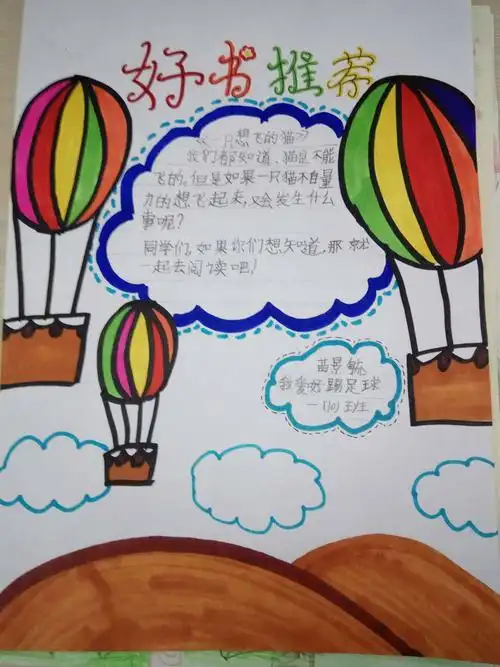 好书推荐
《一只想飞的猫》
我们都知道、猫是不能
飞的。但是如果一只猫不自量
力的想飞起来,又会发生什么
事呢?
同学们,如果你们想知道,那就
一起去阅读吧!
苗景毓
我爱好踢足球
一(10)班生